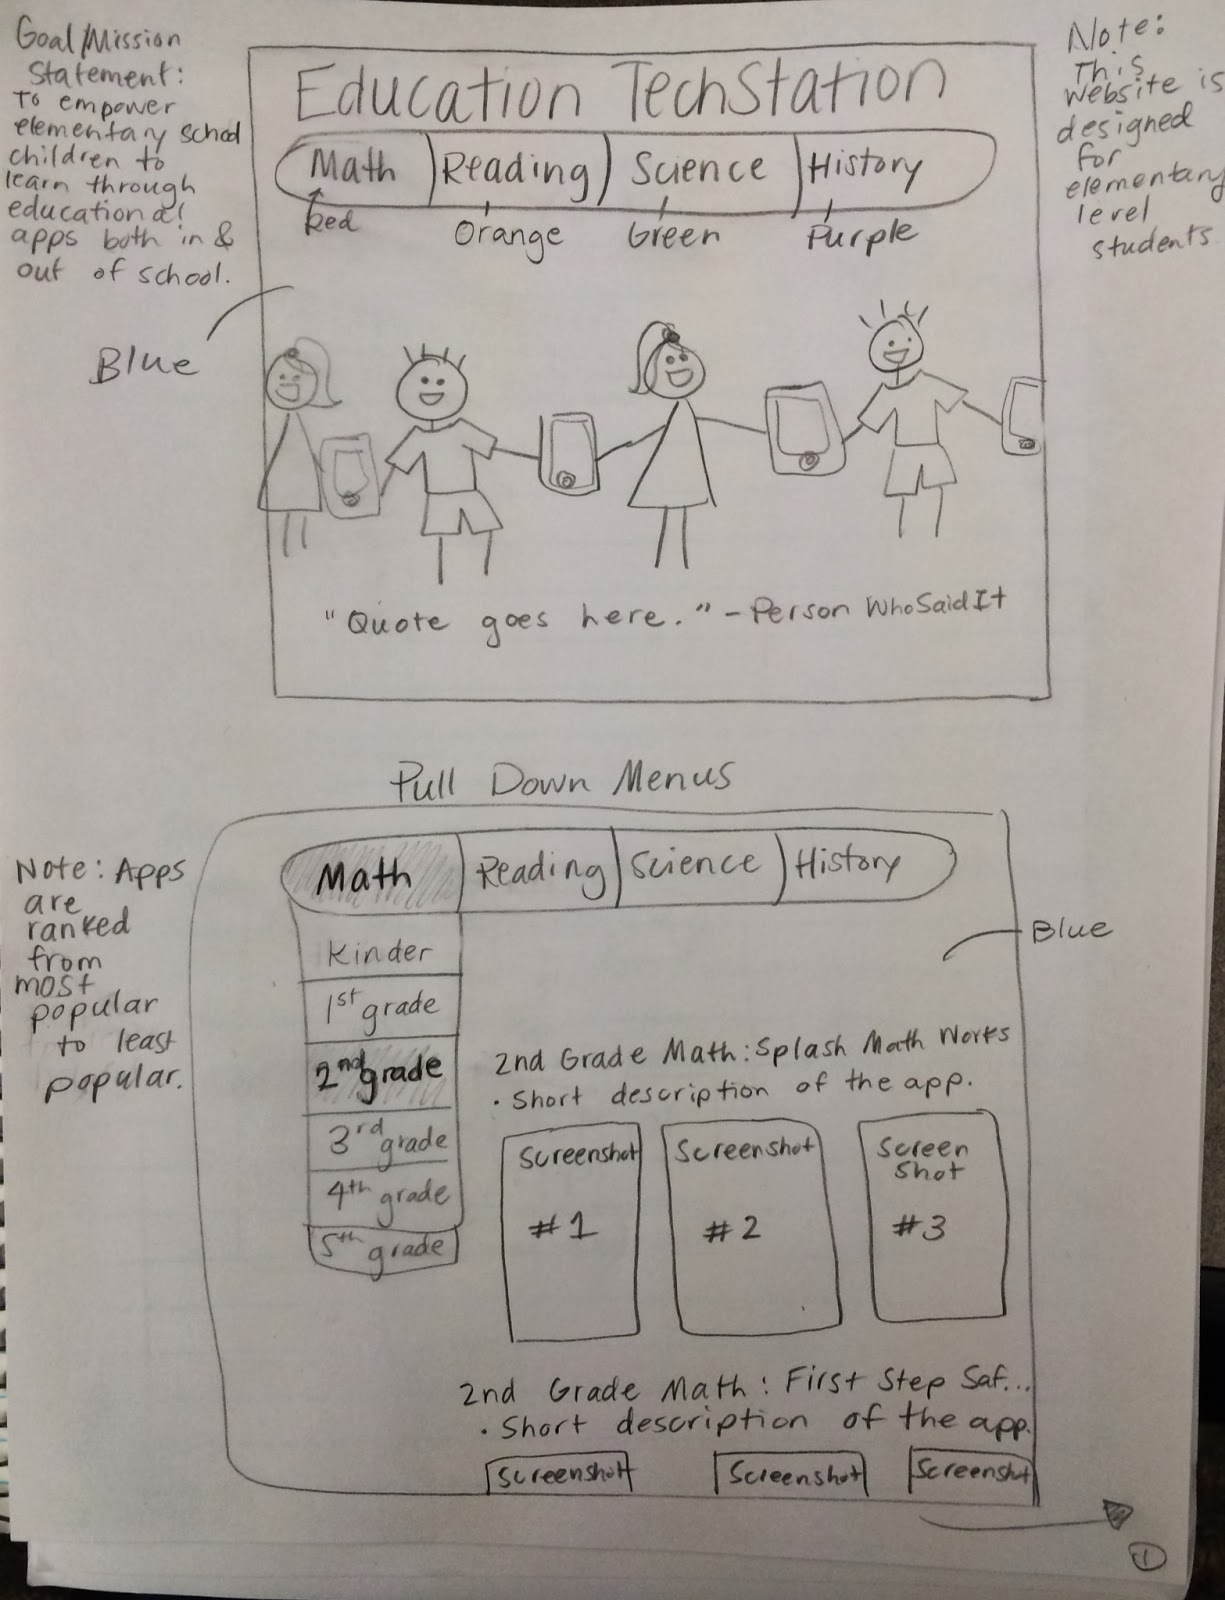 Goal/Mission
Statement:
To empower
elementary school
children to
learn through
educational
apps both in &
out of school.
Note:
This
website is
designed
for
elementary
level
students
Education TechStation
Math Reading Science History
Red Orange Green Purple
Blue
"Quote goes here." - Person WhoSaidIt
Pull Down Menus
Note: Apps
are
ranked
from
most
popular
to least
popular.
Math Reading Science History
Blue
Kinder
1st grade
2nd grade
3rd grade
4th grade
5th grade
2nd Grade Math: Splash Math Works
• Short description of the app.
Screenshot
#1
Screenshot
#2
Screen
Shot
#3
2nd Grade Math: First Step Saf...
• Short description of the app.
Screenshot Screenshot Screenshot
1